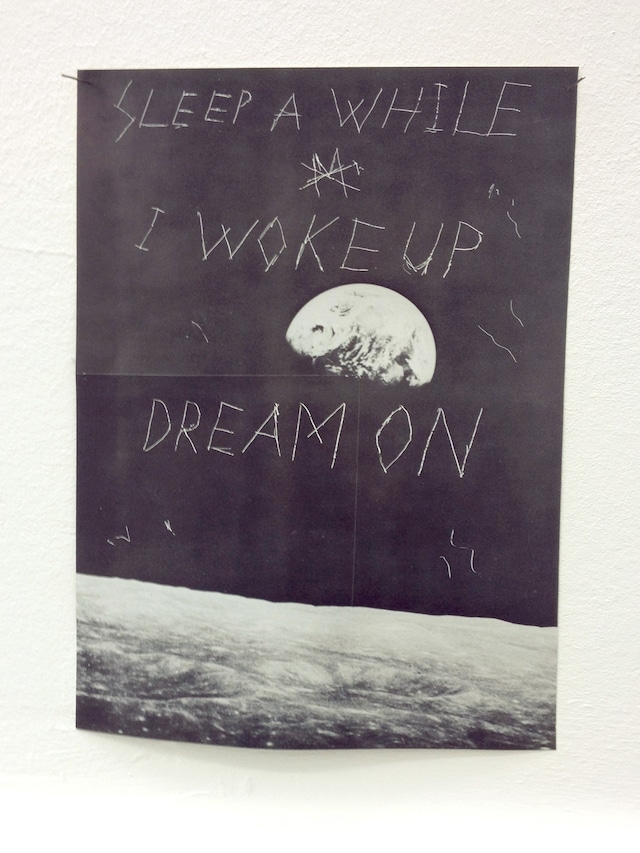 SLEEP A WHILE
I WOKE UP
DREAM ON